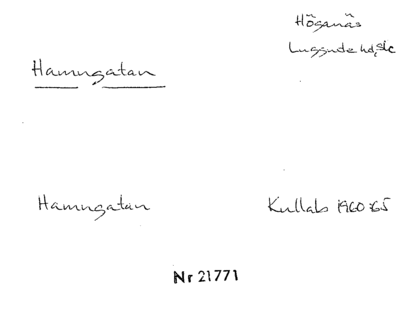 Höganäs
Luggude hd, sic
Hamngatan
Hamngatan
Kullab 1960:65
Nr 21771